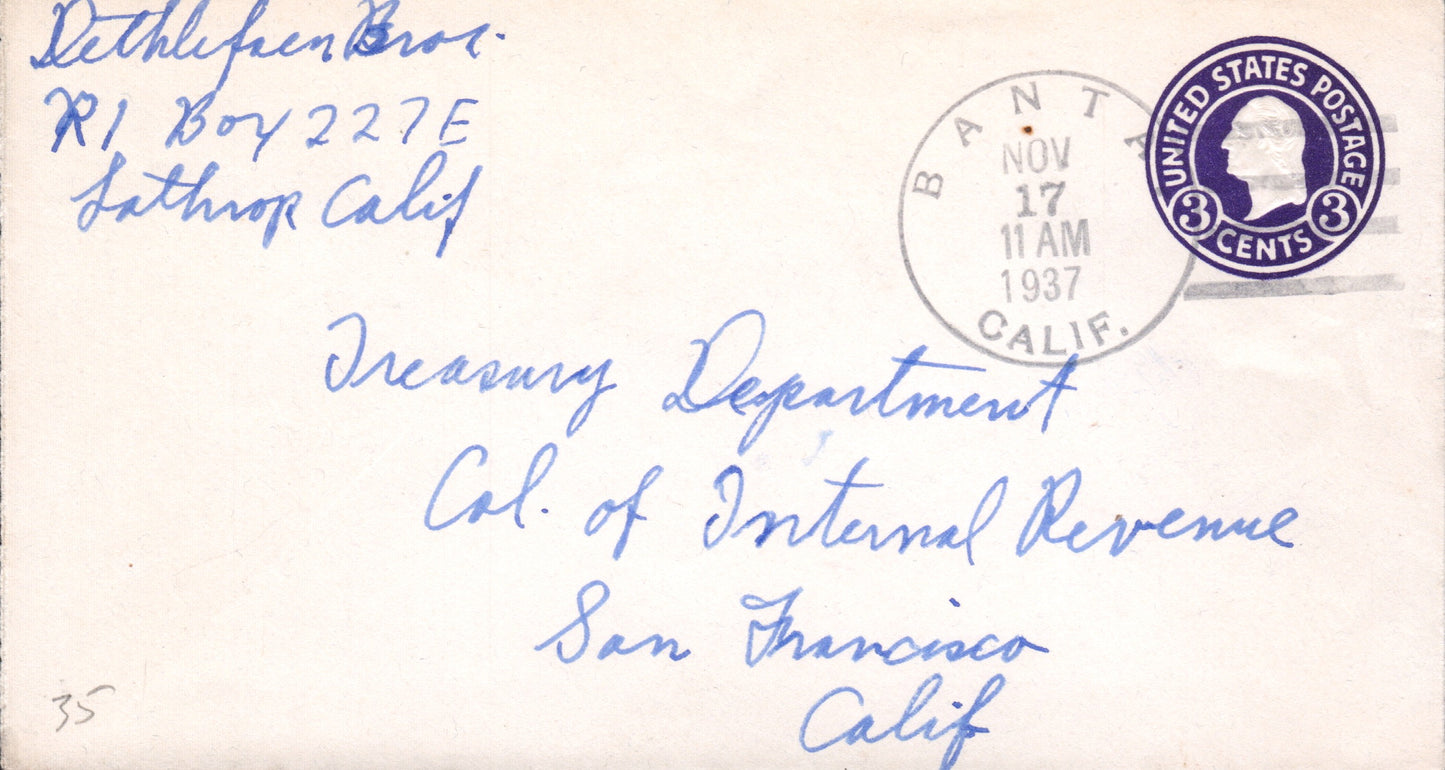 Dethlefsen Bros.
R1 Box 227E
Lathrop Calif
BANTA
NOV
17
11 AM
1937
CALIF.
UNITED STATES POSTAGE
3 CENTS 3
Treasury Department
Col. of Internal Revenue
San Francisco
Calif
35